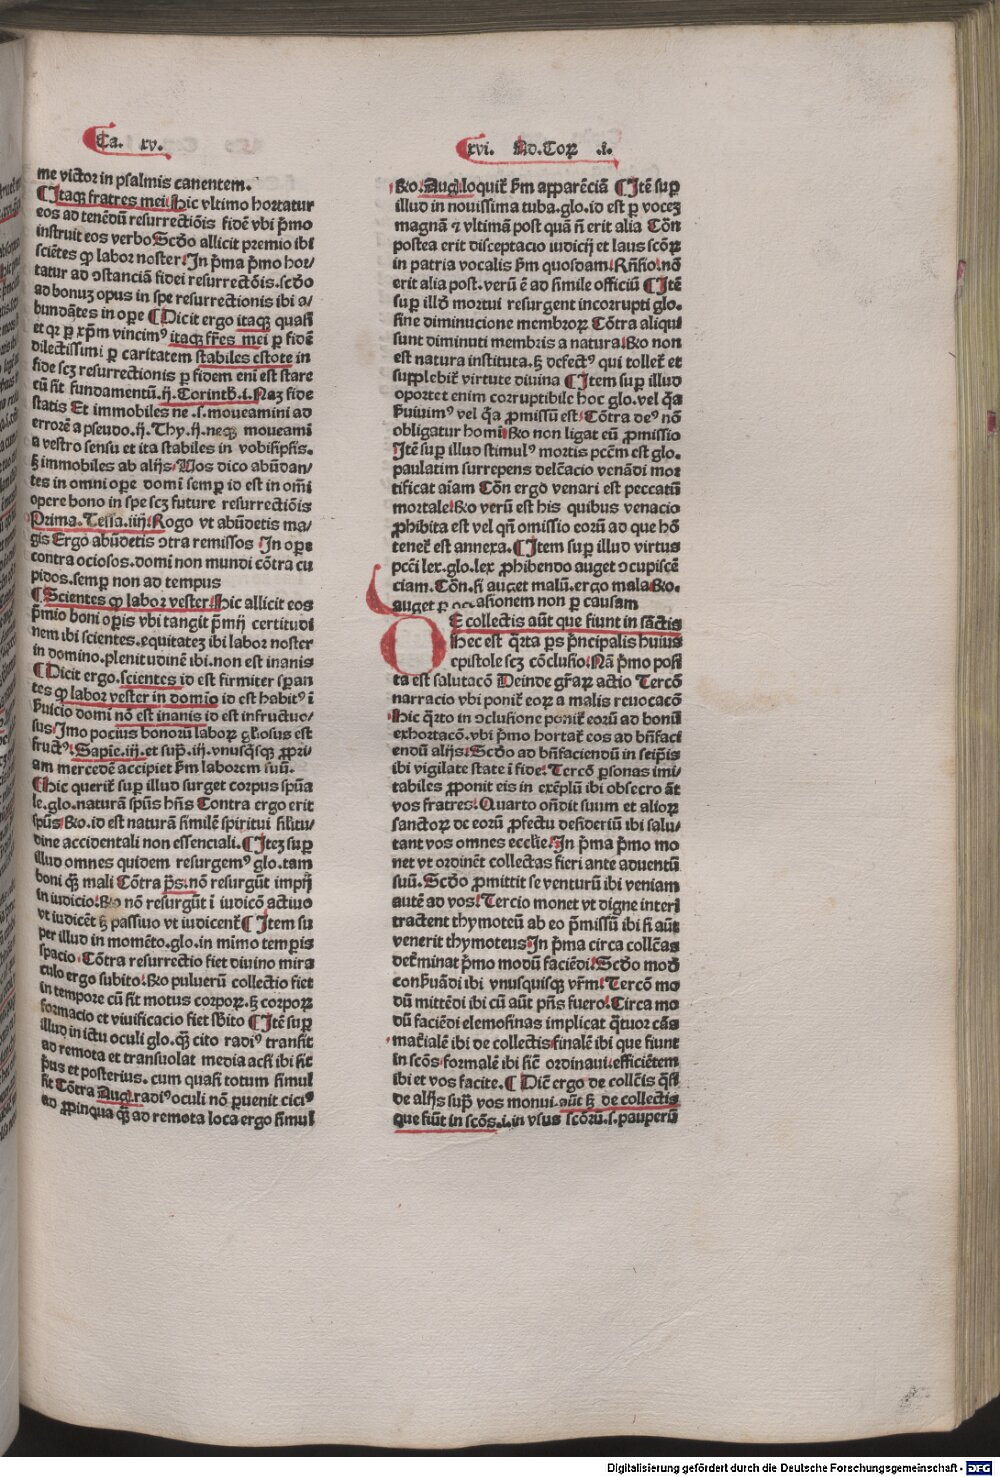 Ca. xv.
me victor in psalmis canentem.
¶ Itaqꝫ fratres mei. Hic vltimo hortatur
eos ad tenēdū resurrectiōis fidē vbi p̄mo
instruit eos verbo Scḋo allicit premio ibi
sciētes ꝙ labor noster. In p̄ma p̄mo hor/
tatur ad ↄstanciā fidei resurrectōis. scḋo
ad bonuꝫ opus in spe resurrectionis ibi a/
bundātes in oꝑe ¶ Dicit ergo itaqꝫ quasi
et qꝛ ꝑ xp̄m vincimꝰ itaqꝫ fr̄es mei ꝑ fidē
dilectissimi ꝑ caritatem stabiles estote in
fide scꝫ resurrectionis ꝑ fidem eni est stare
cū sit fundamentū. ij. Corinth. i. Naꝫ fide
statis Et immobiles ne .s. moueamini ad
errorē a pseudo. ij. Thy. ij. neqꝫ moueami
a vestro sensu et ita stabiles in vobisip̄sis.
ꝫ immobiles ab alijs. Vos dico abūdan/
tes in omni oꝑe domi semꝑ id est in om̄i
opere bono in spe scꝫ future resurrectiōis
Prima. Tessa. iiij. Rogo vt abūdetis ma/
gis Ergo abūdetis ↄtra remissos. In oꝑe
contra ociosos. domī non mundi cōtra cu
pidos. semꝑ non ad tempus
¶ Scientes ꝙ labor vester. Hic allicit eos
p̄mio boni oꝑis vbi tangit p̄mij certitudi
nem ibi scientes. equitateꝫ ibi labor noster
in domino. plenitudinē ibi. non est inanis
¶ Dicit ergo. scientes id est firmiter sꝑan
tes ꝙ labor vester in domīo id est habitꝰ ī
ẜuicio domī nō est inanis id est infructuo/
sus. Imo pocius bonorū laboꝝ gl̓osus est
fructꝰ. Sapie. iij. et sup̄. iij. vnusqͥsqꝫ ꝓpri/
am mercedē accipiet ẜm laborem suū.
¶ Hic querit̓ suꝑ illud surget corpus spūa
le. glo. naturā spūs hn̄s Contra ergo erit
spūs. R̄o. id est naturā similē spiritui silitu/
dine accidentali non essenciali. ¶ Iteꝫ suꝑ
illud omnes quidem resurgemꝰ glo. tam
boni qꝫ mali Cōtra p̄s. nō resurgūt impij
in iudicio. R̄o nō resurgūt ī iudicō actiuo
vt iudicēt ꝫ passiuo vt iudicent̓ ¶ Item su
per illud in momēto. glo. in mimo temꝑis
spacio. Cōtra resurrectio fiet diuino mira
culo ergo subito. R̄o puluerū collectio fiet
in tempore cū sit motus corpoꝝ. ꝫ corpoꝝ
formacio et viuificacio fiet sb̄ito ¶ Itē suꝑ
illud in ictu oculi glo. qꝫ cito radiꝰ transit
ad remota et transuolat media acsi ibi sit
p̄us et posterius. cum quasi totum simul
sit Cōtra Aug. radiꝰ oculi nō ꝑuenit ciciꝰ
ad ꝓpinqua qꝫ ad remota loca ergo simul
xvi. Ad. Coꝝ .i.
R̄o. Aug. loquit̓ ẜm apparēciā ¶ Itē suꝑ
illud in novissima tuba. glo. id est ꝑ voceꝫ
magnā ⁊ vltimā post quā n̄ erit alia Cōn
postea erit disceptacio iudicij et laus scōꝝ
in patria vocalis ẜm quosdam. Rn̄sio. nō
erit alia post. verū ē ad simile officiū ¶ Itē
suꝑ illḋ mortui resurgent incorrupti glo.
sine diminucione membroꝝ Cōtra aliqui
sunt diminuti membris a natura. R̄o non
est natura instituta. ꝫ defectꝰ qui tollet̓ et
supplebit̓ virtute diuina ¶ Item suꝑ illud
oportet enim corruptibile hoc glo. vel qͣa
ẜuiuimꝰ vel qͣa ꝓmissū est. Cōtra deꝰ nō
obligatur homī. R̄o non ligat eū ꝓmissio
Itē suꝑ illud stimulꝰ mortis pccm̄ est glo.
paulatim surrepens delc̄acio venādi mor
tificat aīam Cōn ergo venari est peccatū
mortale. R̄o verū est his quibus venacio
ꝓhibita est vel qn̄ omissio eorū ad que hō
tenet̓ est annexa. ¶ Item suꝑ illud virtus
pcc̄i lex. glo. lex ꝓhibendo auget ↄcupiscē
ciam. Cōn. si auget malū. ergo mala R̄o.
auget ꝑ occasionem non ꝑ causam
DE collectis aūt que fiunt in sāctis
Hec est qͣrta ꝑs p̄ncipalis huius
epistole scꝫ cōclusio. Nā p̄mo posi
ta est salutacō Deinde gr̄aꝝ actio Tercō
narracio vbi ponit̓ eoꝝ a malis reuocacō
Hic qͣrto in ↄclusione ponit̓ eorū ad bonū
exhortacō. vbi p̄mo hortat̓ eos ad bn̄faci
endū alijs. Scḋo ad bn̄faciendū in seip̄is
ibi vigilate state ī fide. Tercō ꝑsonas imi/
tabiles ꝓponit eis in exēplū ibi obsecro āt
vos fratres. Quarto on̄dit suum et alioꝝ
sanctoꝝ de eorū ꝓfectu desideriū ibi salu/
tant vos omnes eccl̓ie. In p̄ma p̄mo mo
net vt ordinēt collectas fieri ante aduentū
suū. Scḋo ꝓmittit se venturū ibi veniam
autē ad vos. Tercio monet vt digne interī
tractent thymoteū ab eo p̄missū ibi si aūt
venerit thymoteus. In p̄ma circa collc̄as
det̓minat p̄mo modū faciēdi. Scḋo moḋ
conẜuādi ibi vnusquisqꝫ vr̄m. Tercō mo
dū mittēdi ibi cū aūt pn̄s fuero. Circa mo
dū faciēdi elemosinas implicat qͣtuor cās
mat̓ialē ibi de collectis finalē ibi que fiunt
in scōs. formalē ibi sic̄ ordinaui. efficiētem
ibi et vos facite. ¶ Dic̄ ergo de collc̄is qͣsi
de alijs sup̄ vos monui. aūt ꝫ de collectis
que fiūt in scōs .i. in vsus scōrū .s. pauperū
Digitalisierung gefördert durch die Deutsche Forschungsgemeinschaft - DFG